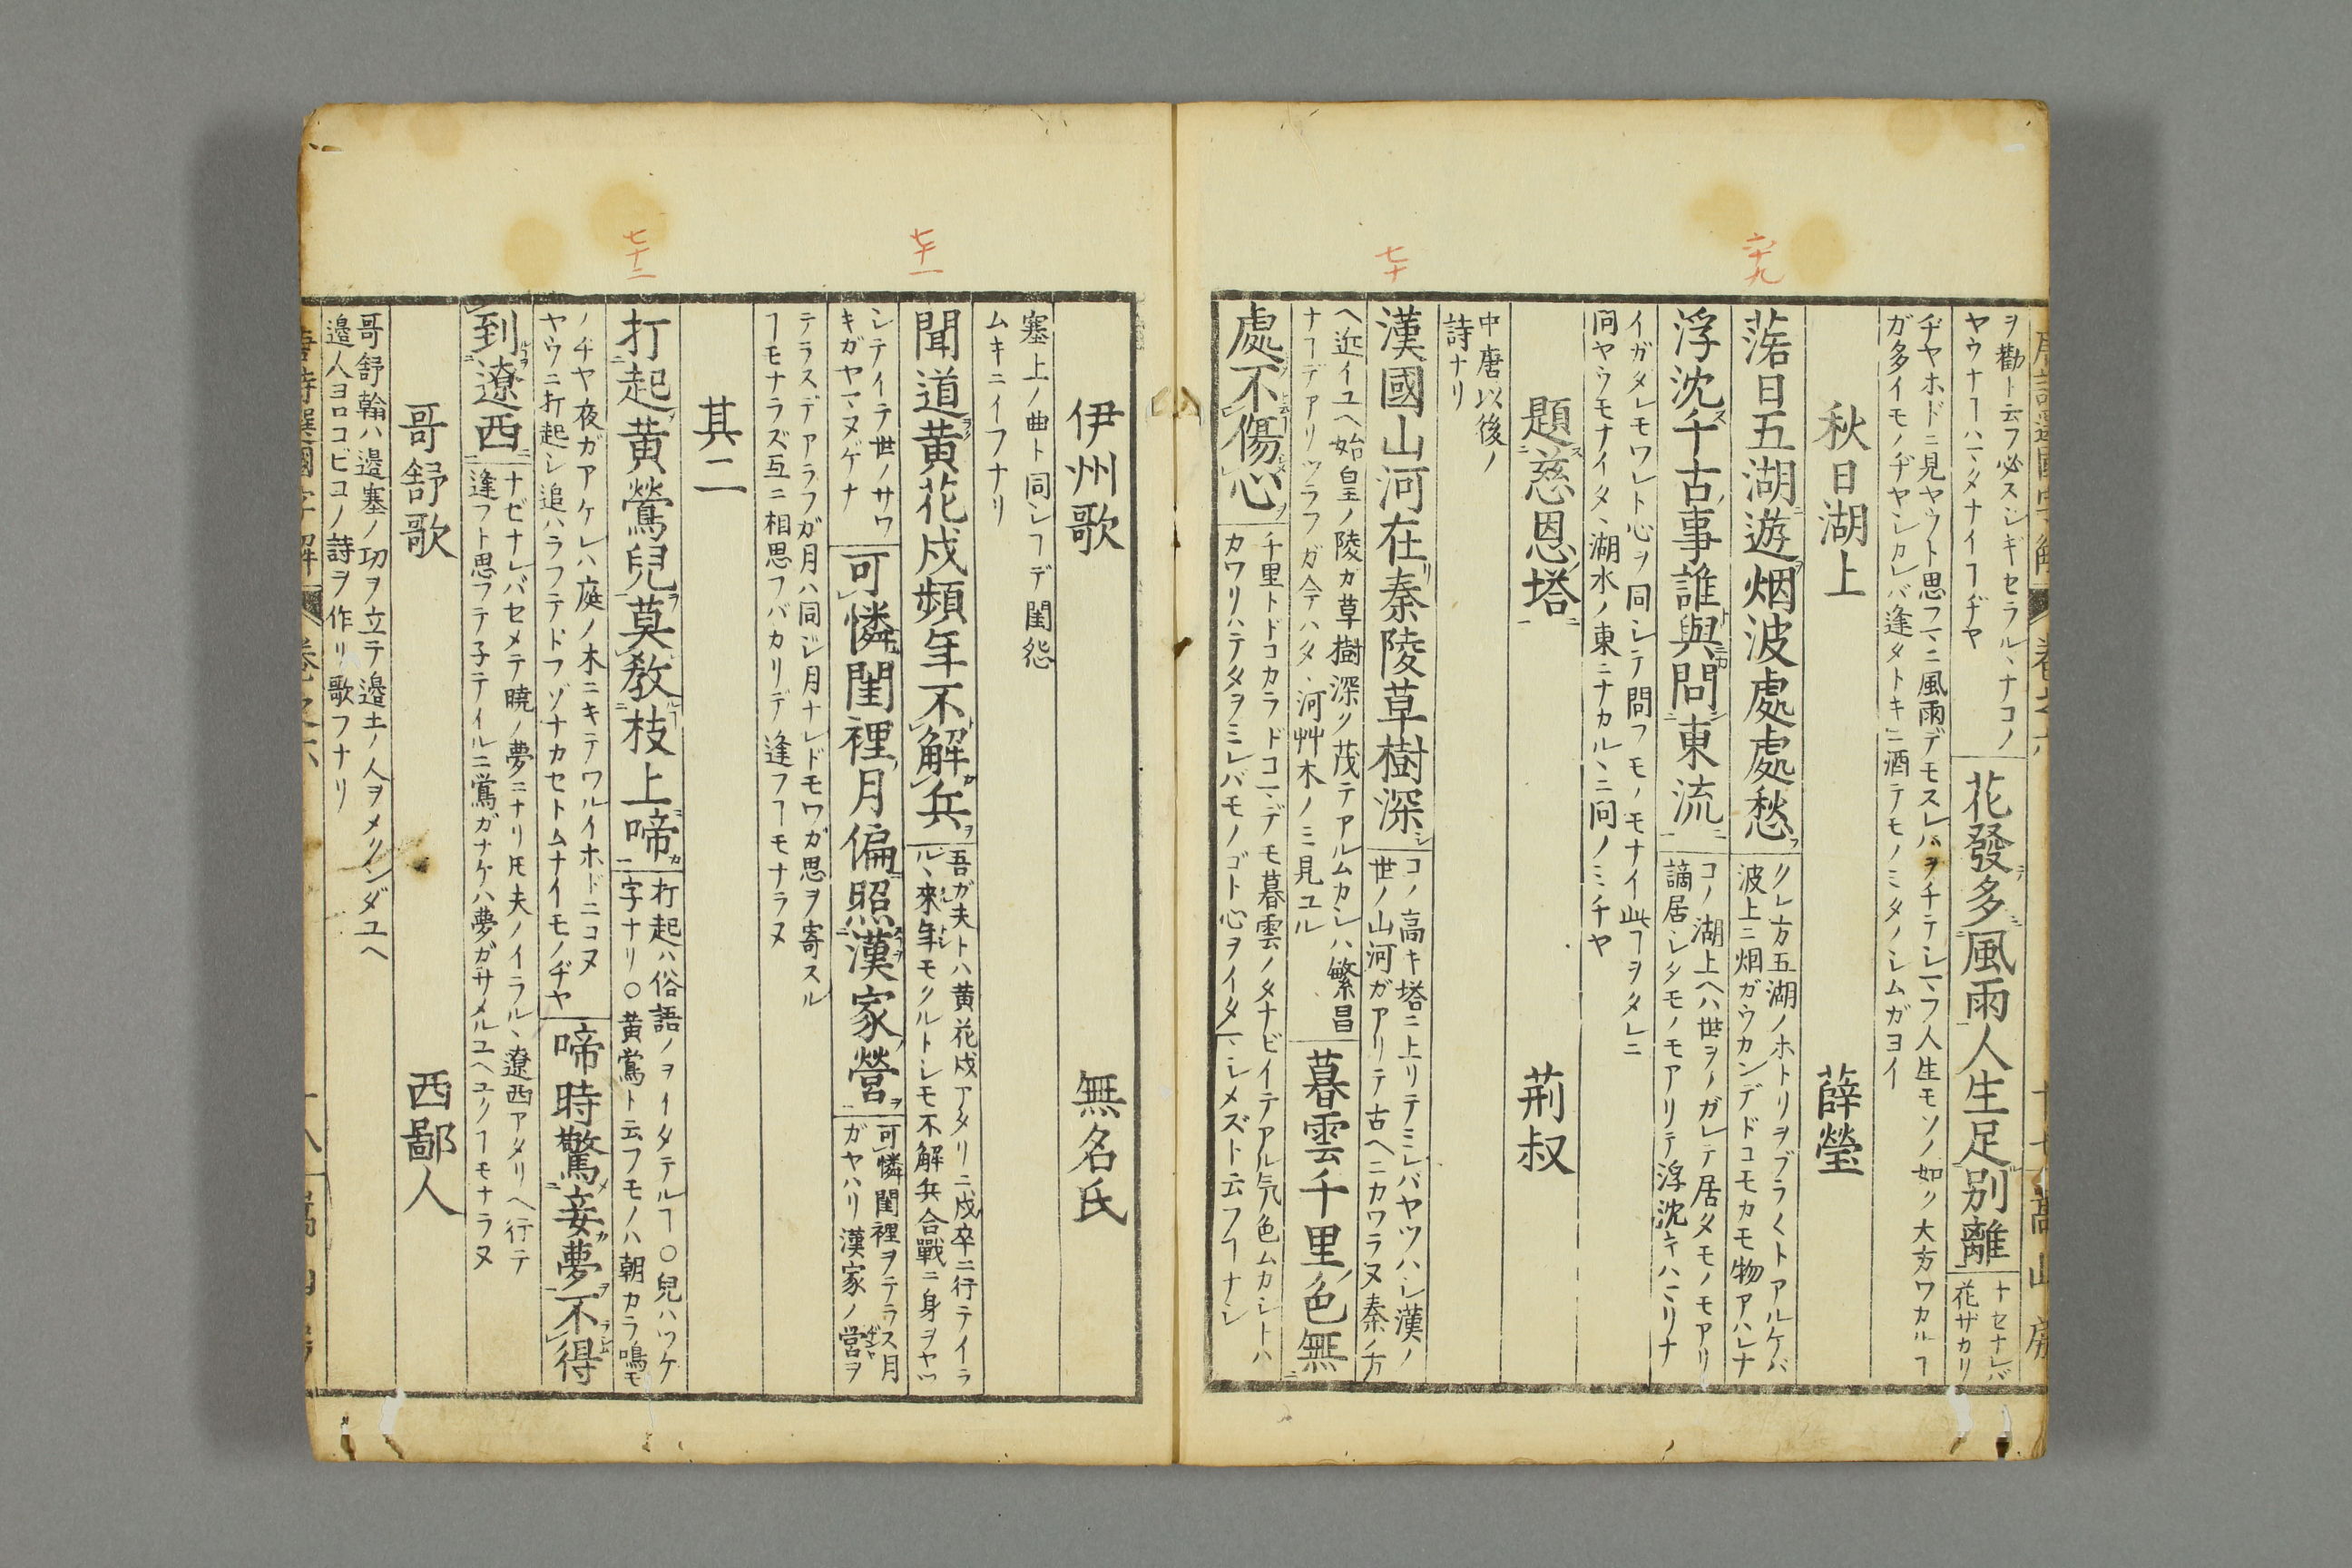 六十九
七十
ヲ勸ト云フ必スシギセラルヽナコノ
ヤウナヿハヽメナイヿヂヤ
花發多風雨人生足別離
ナセナレバ
花ザカリ
ヂヤホドニ見ヤウト思フマニ風雨デモスレバヲチテシマフ人生モソノ如ク大方ワカルヽヿ
ガ多イモノヂヤシカレバ逢タトキニ酒テモノミタノシムガヨイ
秋日湖上　薛瑩
落日五湖遊烟波處處愁
クレ方五湖ノホトリヲブラ〱トアルケバ
波上ニ烟ガウカンデドコモカモ物アハレナ
浮沈千古事誰與問東流
コノ湖上ヘハ世ヲノガレテ居タモノモアリ
謫居シタモノモアリテ浮沈キハマリナ
イガタレモワレト心ヲ同シテ問フモノモナイ此ヿヲタレニ
問ヤウモナイタヽ湖水ノ東ニナカルヽニ問ノミチヤ
題慈恩塔　荊叔
中唐以後ノ
詩ナリ
漢國山河在秦陵草樹深
コノ高キ塔ニ上リテミレバヤツハシ漢ノ
世ノ山河ガアリテ古ヘニカワラヌ秦ノ方
ヘ近イユヘ始皇ノ陵カ草樹深ク茂テアルムカシハ繁昌
ナヿデアリツラフガ今ハタヽ河艸木ノミ見ユル
暮雲千里色無
處不傷心
千里トドコカラドコマデモ暮雲ノタナビイテアル気色ムカシトハ
カワリハテタヲミレバモノゴト心ヲイタマシメズト云フヿナシ
七十一
七十二
伊州歌　無名氏
塞上ノ曲ト同シヿデ閨怨
ムキニイフナリ
聞道黄花戍頻年不解兵
吾ガ夫トハ黄花戍アタリニ戍卒ニ行テイラ
ルヽ來年モクルトシモ不解兵合戰ニ身ヲヤツ
シテイテ世ノサワ
キガヤマヌゲナ
可憐閨裡月偏照漢家營
可憐閨裡ヲテラス月
ガヤハリ漢家ノ営ヲ
テラスデアラフガ月ハ同ジ月ナレドモワガ思ヲ寄スル
ヿモナラズ互ニ相思フバカリデ逢フヿモナラヌ
其二
打起黄鶯兒莫教枝上啼
打起ハ俗語ノヲイタテルヿ〇兒ハツケ
字ナリ〇黄鶯ト云フモノハ朝カラ鳴モ
ノヂヤ夜ガアケレハ庭ノ木ニキテワルイホドニコヌ
ヤウニ打起シ追ハラフテドフゾナカセトムナイモノヂヤ
啼時驚妾夢不得
到遼西
ナゼナレバセメテ曉ノ夢ニナリ𪜈夫ノイラルヽ遼西アタリヘ行テ
逢フト思フテ子テイルニ鶯ガナケハ夢ガサメルユヘユクヿモナラヌ
哥舒歌　西鄙人
哥舒翰ハ邉塞ノ功ヲ立テ邉土ノ人ヲメグンダユヘ
邉人ヨロコビコノ詩ヲ作リ歌フナリ